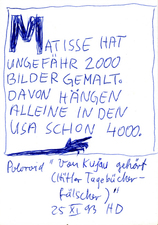 MATISSE HAT
UNGEFÄHR 2000
BILDER GEMALT.
DAVON HÄNGEN
ALLEINE IN DEN
USA SCHON 4000.
"von Kujau gehört
(Hitler Tagebücher-
fälscher)"
25 XI 93 HD